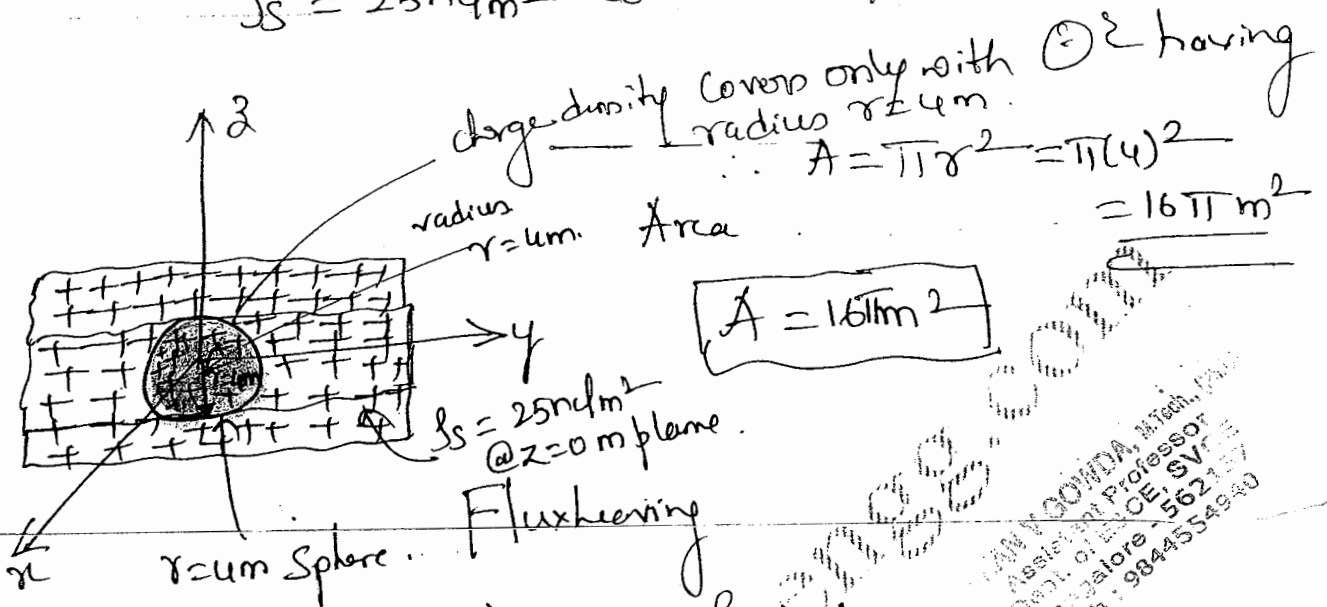 charge density Covers only with having
radius r=4m.
∴ A = πr² = π(4)²
= 16πm²
z
radius
r=4m.
Area
A = 16πm²
y
ρs = 25nc/m²
@ z=0 m plane.
x
r=4m Sphere.
Flux leaving
GOWDA, M.Tech,
Assistant Professor
9844554940